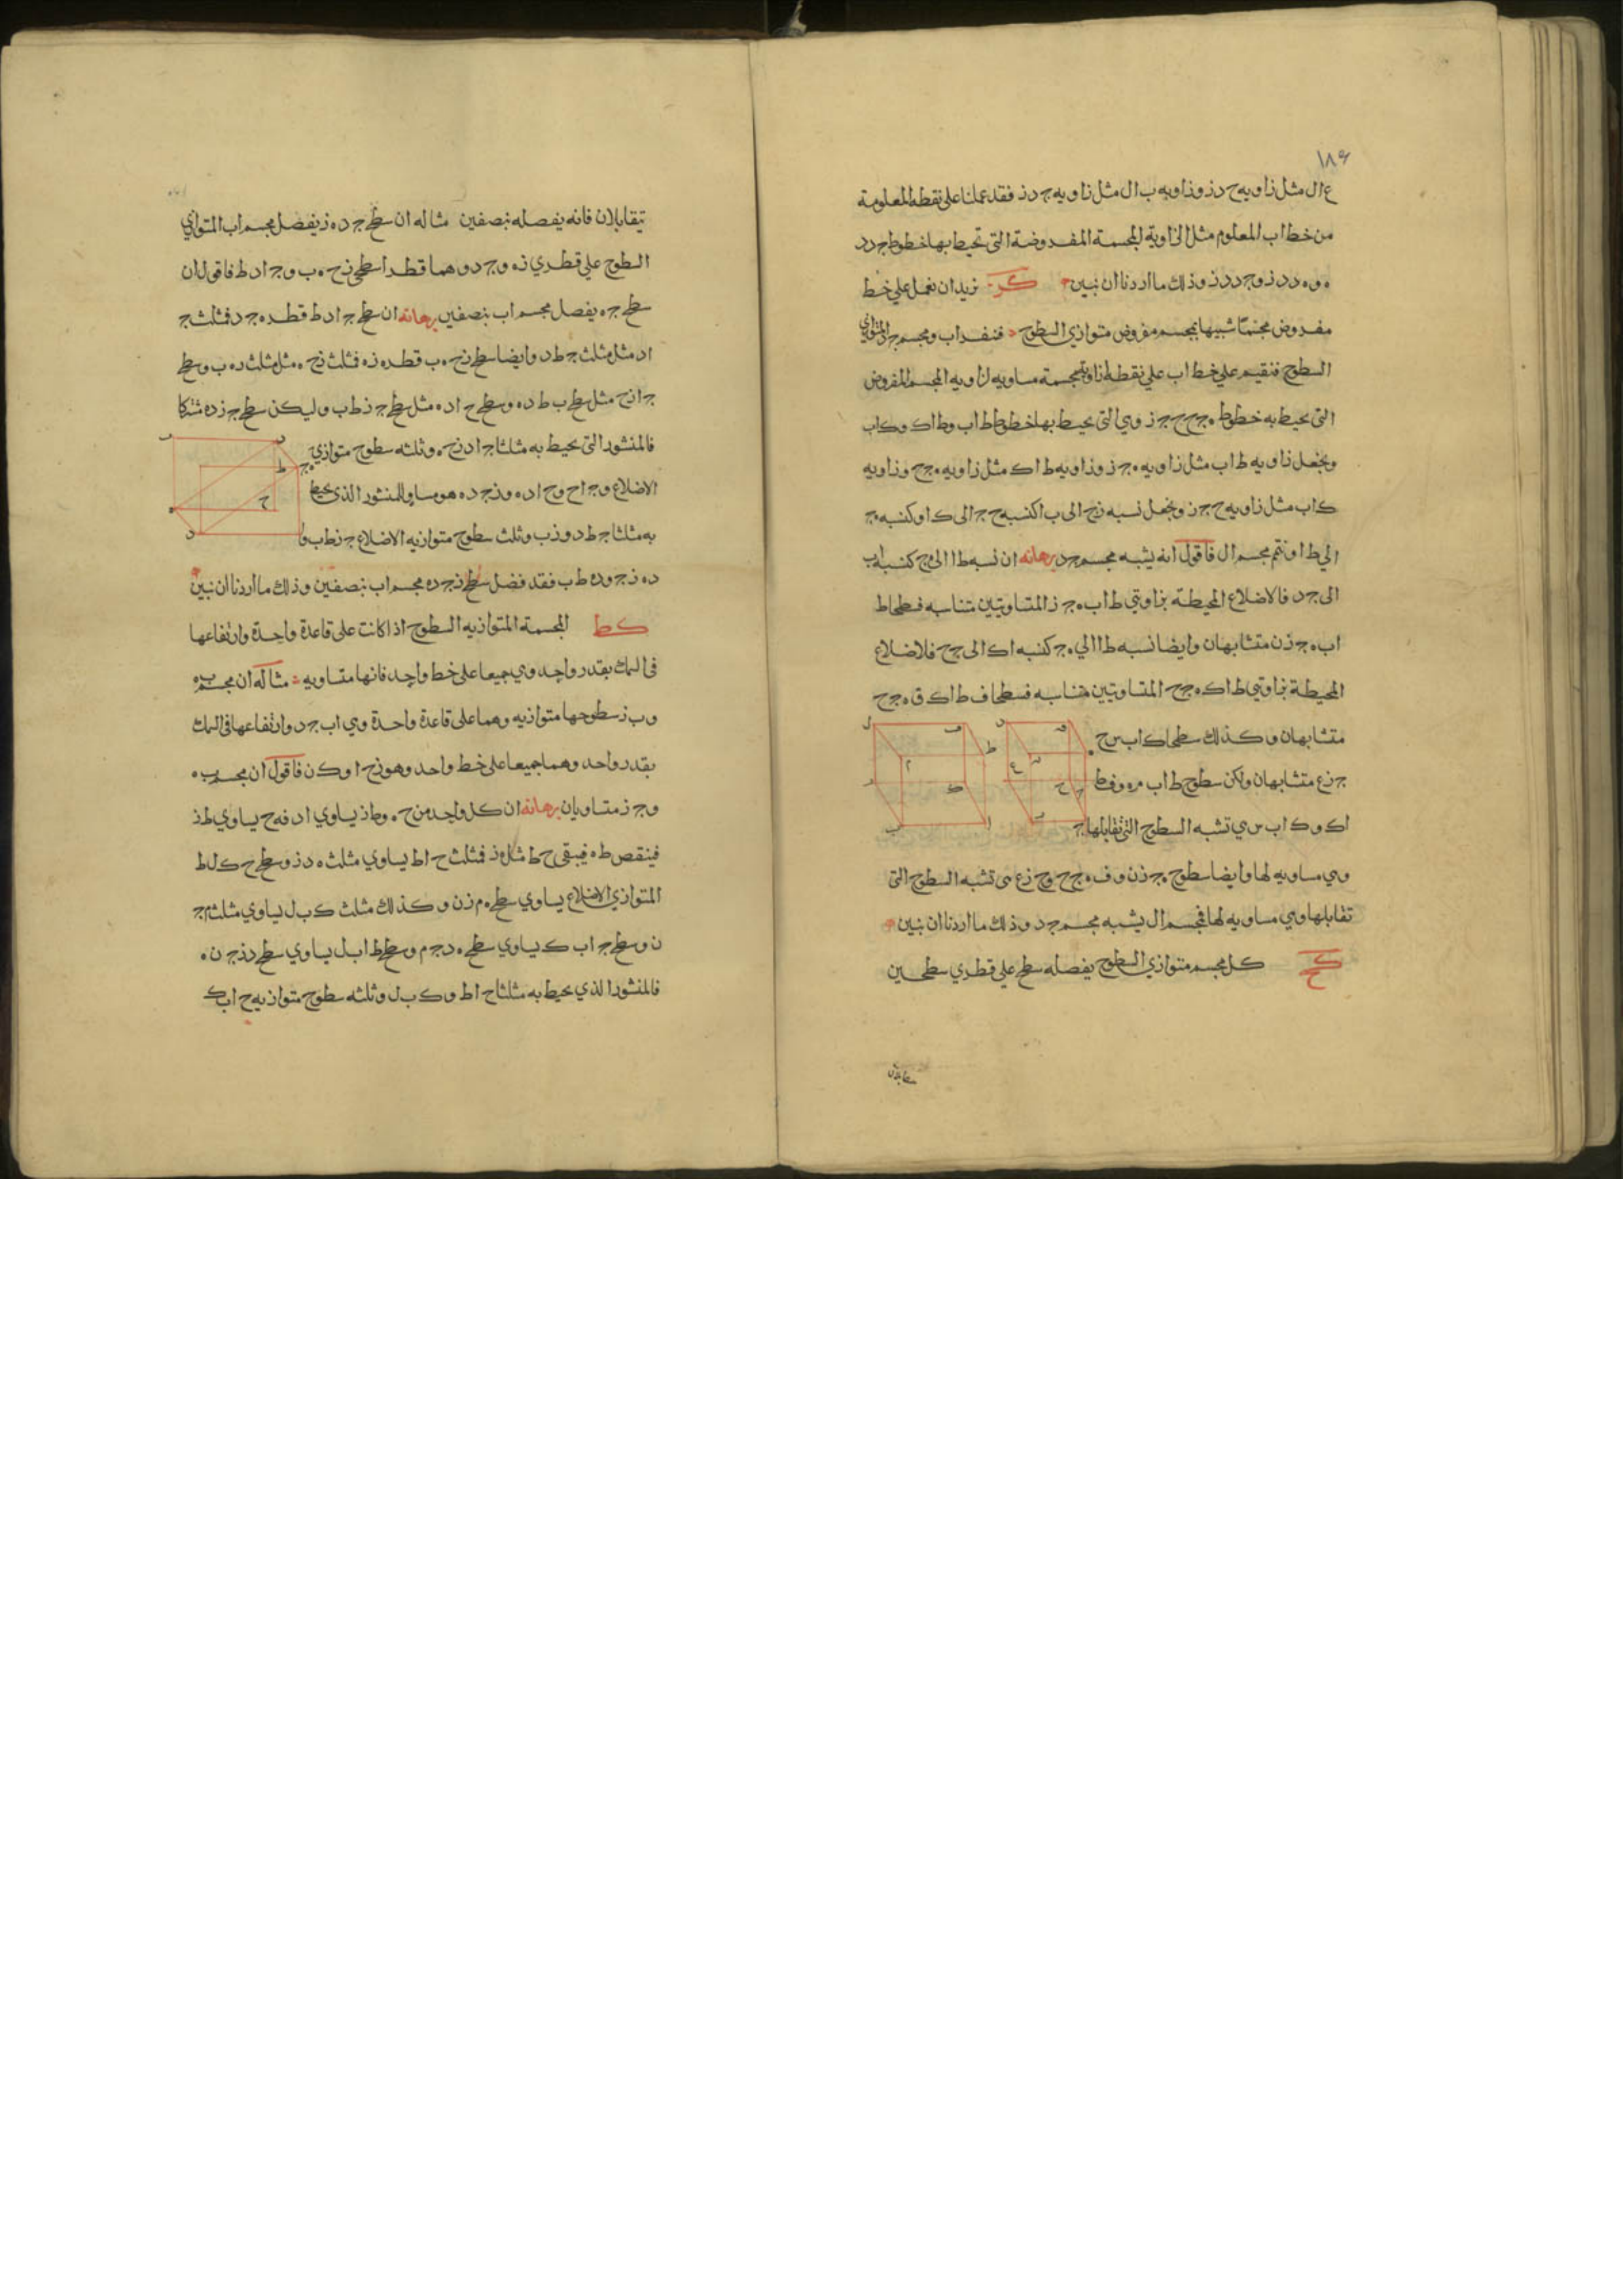 ١٨٤
ع ال مثل زاويه ح د ز وزاويه ب ال مثل زاويه ج د ز فقد عملنا على نقطه ا المعلومة
من خط اب المعلوم مثل الزاوية المجسمة المفروضة التى تحيط بها خطوط ج د د
ه و ه د د ز و ج د د ز وذلك ما اردنا ان نبين كز نريد ان نعمل على خط
مفروض مجسما شبيها بمجسم مفروض متوازي السطوح فنفرض اب ومجسم ج د المتوازي
السطوح فنقيم على خط اب على نقطة ا زاوية مجسمة مساويه لزاويه المجسم المفروض
التى يحيط به خطوط ه ج ح ج ج ز وهي التى يحيط بها خطوط ط اب وط اك وك اب
ونجعل زاويه ط اب مثل زاويه ه ج ز وزاويه ط اك مثل زاويه ه ج ح وزاويه
ك اب مثل زاويه ح ج ز ونجعل نسبه ز ج الى ب ا كنسبه ح ج الى ك ا وكنسبه ه ج
الى ط ا ونتم مجسم ال فاقول انه يشبه مجسم ج د برهانه ان نسبه ط ا الى ه ج كنسبه اب
الى ج د فالاضلاع المحيطة بزاويتي ط اب ه ج ز المتساويتين متناسبه فسطحا ط
اب ه ج ز ن متشابهان وايضا نسبه ط ا الى ه ج كنسبه اك الى ج ح فلاضلاع
المحيطة بزاويتي ط اك ه ج ح المتساويتين متناسبه فسطحا ف ط اك ق ه ج ح
متشابهان وكذلك سطحا ك اب س ح
ج ز ع متشابهان ولكن سطوح ط اب م ه و ف ط
اك وك اب س هي تشبه السطوح التى تقابلها
وهي مساويه لها وايضا سطوح ه ج ز ن و ف ه ج ح و ح ج ز ع هى تشبه السطوح التى
تقابلها وهي مساويه لها فمجسم ال يشبه مجسم ج د وذلك ما اردنا ان نبين
كح كل مجسم متوازي السطوح يفصله سطح على قطري سطحين
يتقابلان
يتقابلان فانه يفصله بنصفين مثاله ان سطح ج د ه ز يفصل مجسم اب المتوازي
السطوح على قطري ز ه و ج د وهما قطرا سطحي ز ح ه ب و ج ا د ط فاقول ان
سطح ج ه يفصل مجسم اب بنصفين برهانه ان سطح ج ا د ط قطره ج د فمثلث ج
ا د مثل مثلث ج ط د وايضا سطح ز ح ه ب قطره ز ه فمثلث ز ح ه مثل مثلث ز ه ب وسطح
ج ا ز ح مثل سطح ب ط د ه وسطح ح ا د ه مثل سطح ج ز ط ب وليكن سطح ج ز د ه مشتركا
فالمنشور التى يحيط به مثلثا ج ا د ز ح ه وثلثه سطوح متوازي
الاضلاع و ج ا ح و ح ا د ه و ز ج د ه هو مساو للمنشور الذى يحيط
به مثلثا ج ط د و ز ب وثلث سطوح متوازيه الاضلاع ج ز ط ب و
د ه ز ج و د ه ط ب فقد فصل سطح ز ج د ه مجسم اب بنصفين وذلك ما اردنا ان نبين
كط المجسمة المتوازيه السطوح اذا كانت على قاعدة واحدة وارتفاعها
فى السمك بقدر واحد وهي جميعا على خط واحد فانها متساويه مثاله ان مجسمي ب ه
و ب ز سطوحها متوازيه وهما على قاعدة واحدة وهي اب ج د وارتفاعها فى السمك
بقدر واحد وهما جميعا على خط واحد وهو ز ح ا و ك ن فاقول ان مجسمي ب ه
و ج ز متساويان برهانه ان كل واحد من ح ه و ط ز يساوي ا د فه ح يساوي ط ز
فينقص ط ه فيبقى ح ط مثل ه ز فمثلث ح ا ط يساوي مثلث ه د ز وسطح ح ك ل ط
المتوازي الاضلاع يساوي سطح ه م ز ن وكذلك مثلث ك ب ل يساوي مثلث م ج
ن وسطح ح اب ك يساوي سطح ه د ج م وسطح ط اب ل يساوي سطح د ز ج ن ه
فالمنشور الذي يحيط به مثلثا ح ا ط و ك ب ل وثلثه سطوح متوازيه ح اب ك